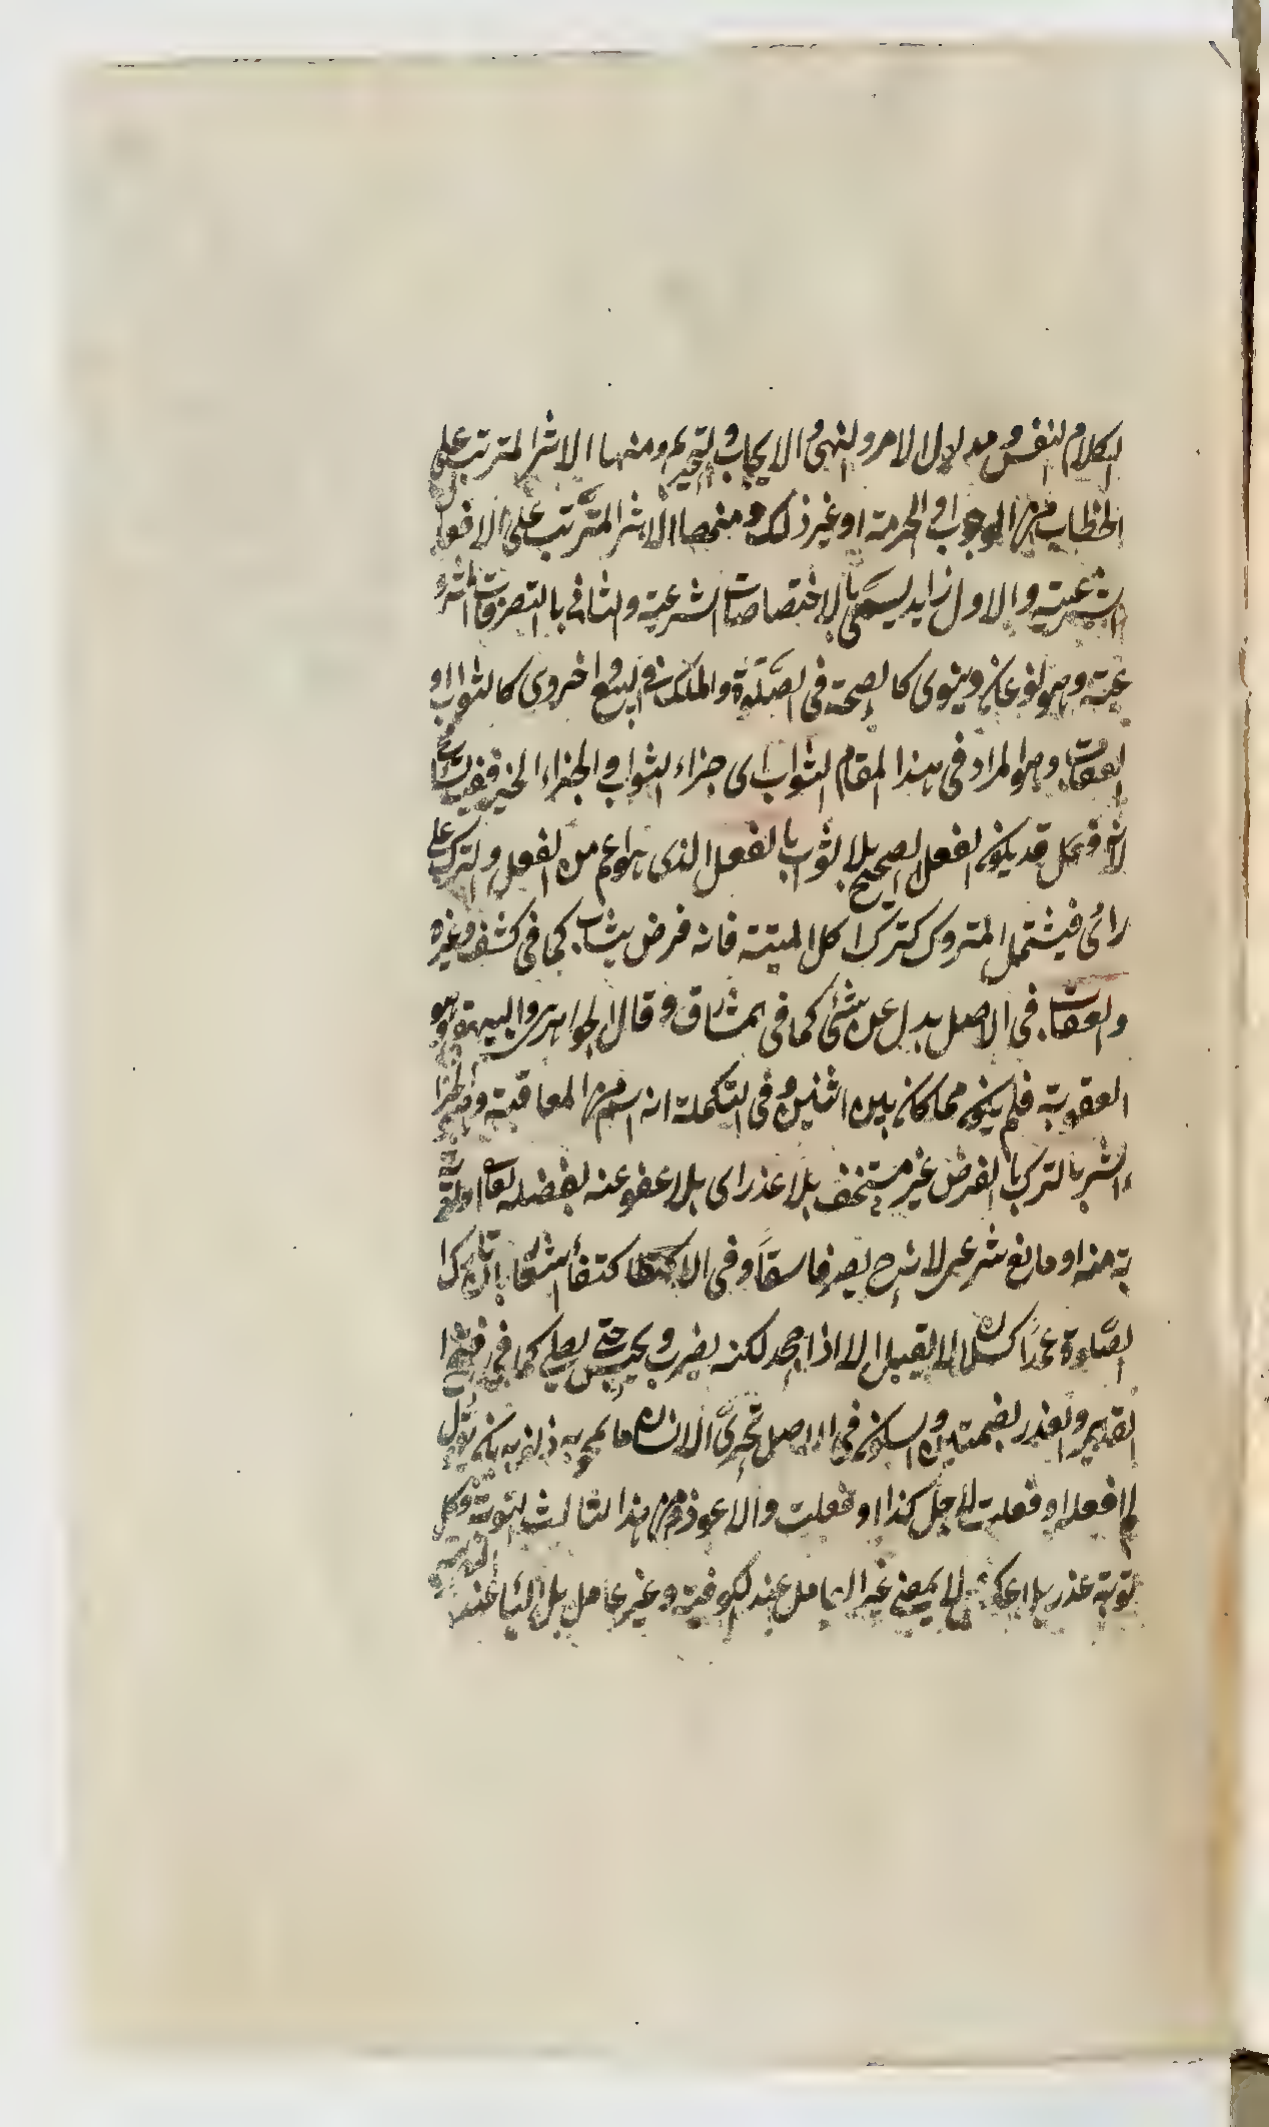 الكلام النفسى ومدلول الامر والنهى والايجاب والتحريم ومنها الاثر المترتب على
الخطاب من الوجوب او الحرمة او غير ذلك ومنها الاثر المترتب على الافعا
الشرعية والاول زايد يسمى بالاختصاصات الشرعية والثانى بالتصرفات الشر
عية وهو نوعان دينوى كالصحة فى الصلوة والملك فى البيع واخروى كالثواب او
العقاب وهو المراد فى هذا المقام الثواب اى جزاء الثواب والجزاء الخير
قد يكون الفعل الصحيح بلا ثواب بالفعل الذى هو اعم من الفعل والترك على
رائى فيشتمل المتروك كترك اكل الميتة فانه فرض يثاب كما فى كشف وغيره
والعقاب فى الاصل بدل عن شئى كما فى المشارق وقال الجواهرى والبيهقى وهو
العقوبة فلم يكن مما كان بين اثنين وفى التكملة انه اسم من المعاقبة
الشر بالترك بالفرض غير مستخف بلا عذر اى بلا عفو عنه بفضله تعالى او
بة منه او مانع شرعى لا يصر فاسقاً وفى الاكتفا
الصلوة عمداً كسلا لا يقتل الا اذا جحد لكنه يضرب ويحبس حتى يصلى كما فى
القدير والعذر بضمتين والسكون فى الاصل تحرى الانسان ما يمحو به ذنوبه بان يقول
لم افعل او فعلت لاجل كذا او فعلت ولا اعود فمن هذا الثالث التوبة فكل
توبة عذر بلا عكس لا بمعنى غير العامل عند الكوفية وغير عامل بل البا عند